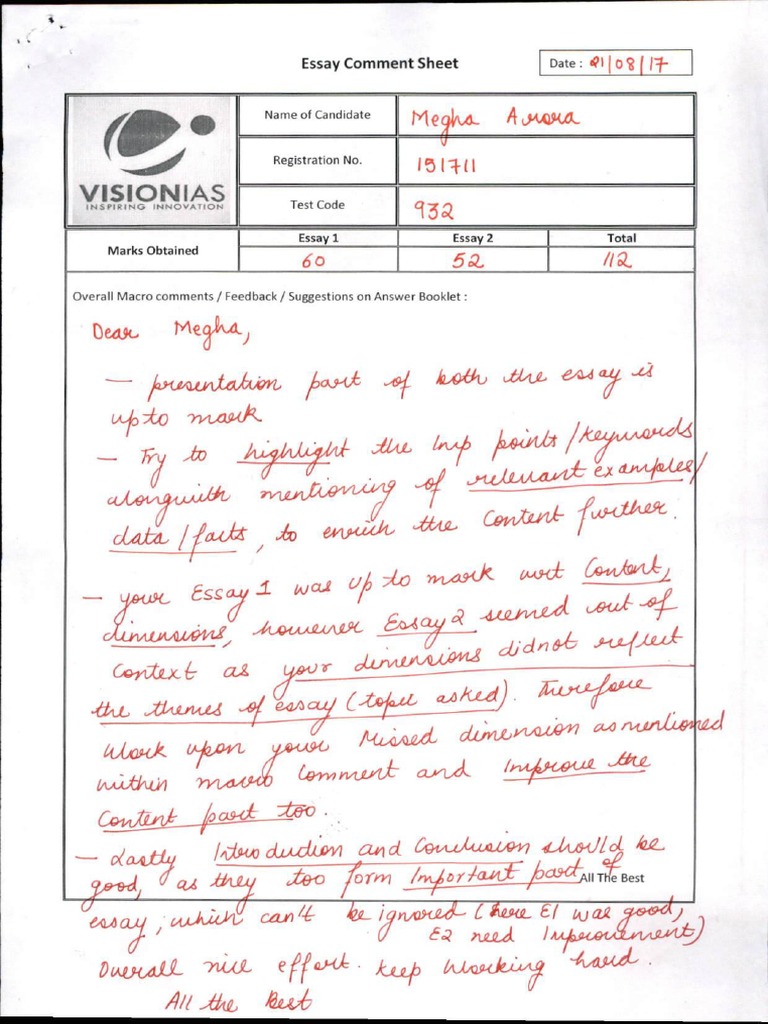 Essay Comment Sheet
Date : 21/08/17
VISIONIAS
INSPIRING INNOVATION
Name of Candidate Megha Arora
Registration No. 151711
Test Code 932
Marks Obtained
Essay 1 Essay 2 Total
60 52 112
Overall Macro comments / Feedback / Suggestions on Answer Booklet :
Dear Megha,
— presentation part of both the essay is
upto mark
— Try to highlight the Imp points/keywords
alongwith mentioning of relevant examples/
data/facts, to enrich the Content further.
— your Essay 1 was up to mark wrt Content,
dimensions, however Essay 2 seemed out of
Context as your dimensions didnot reflect
the themes of essay (topic asked). Therefore
Work upon your Missed dimension as mentioned
within macro Comment and Improve the
Content part too.
— Lastly Introduction and Conclusion should be
good, as they too form Important part of
All The Best
essay, which can't be ignored (here E1 was good,
E2 need Improvement)
Overall nice effort. keep Working hard.
All the Best